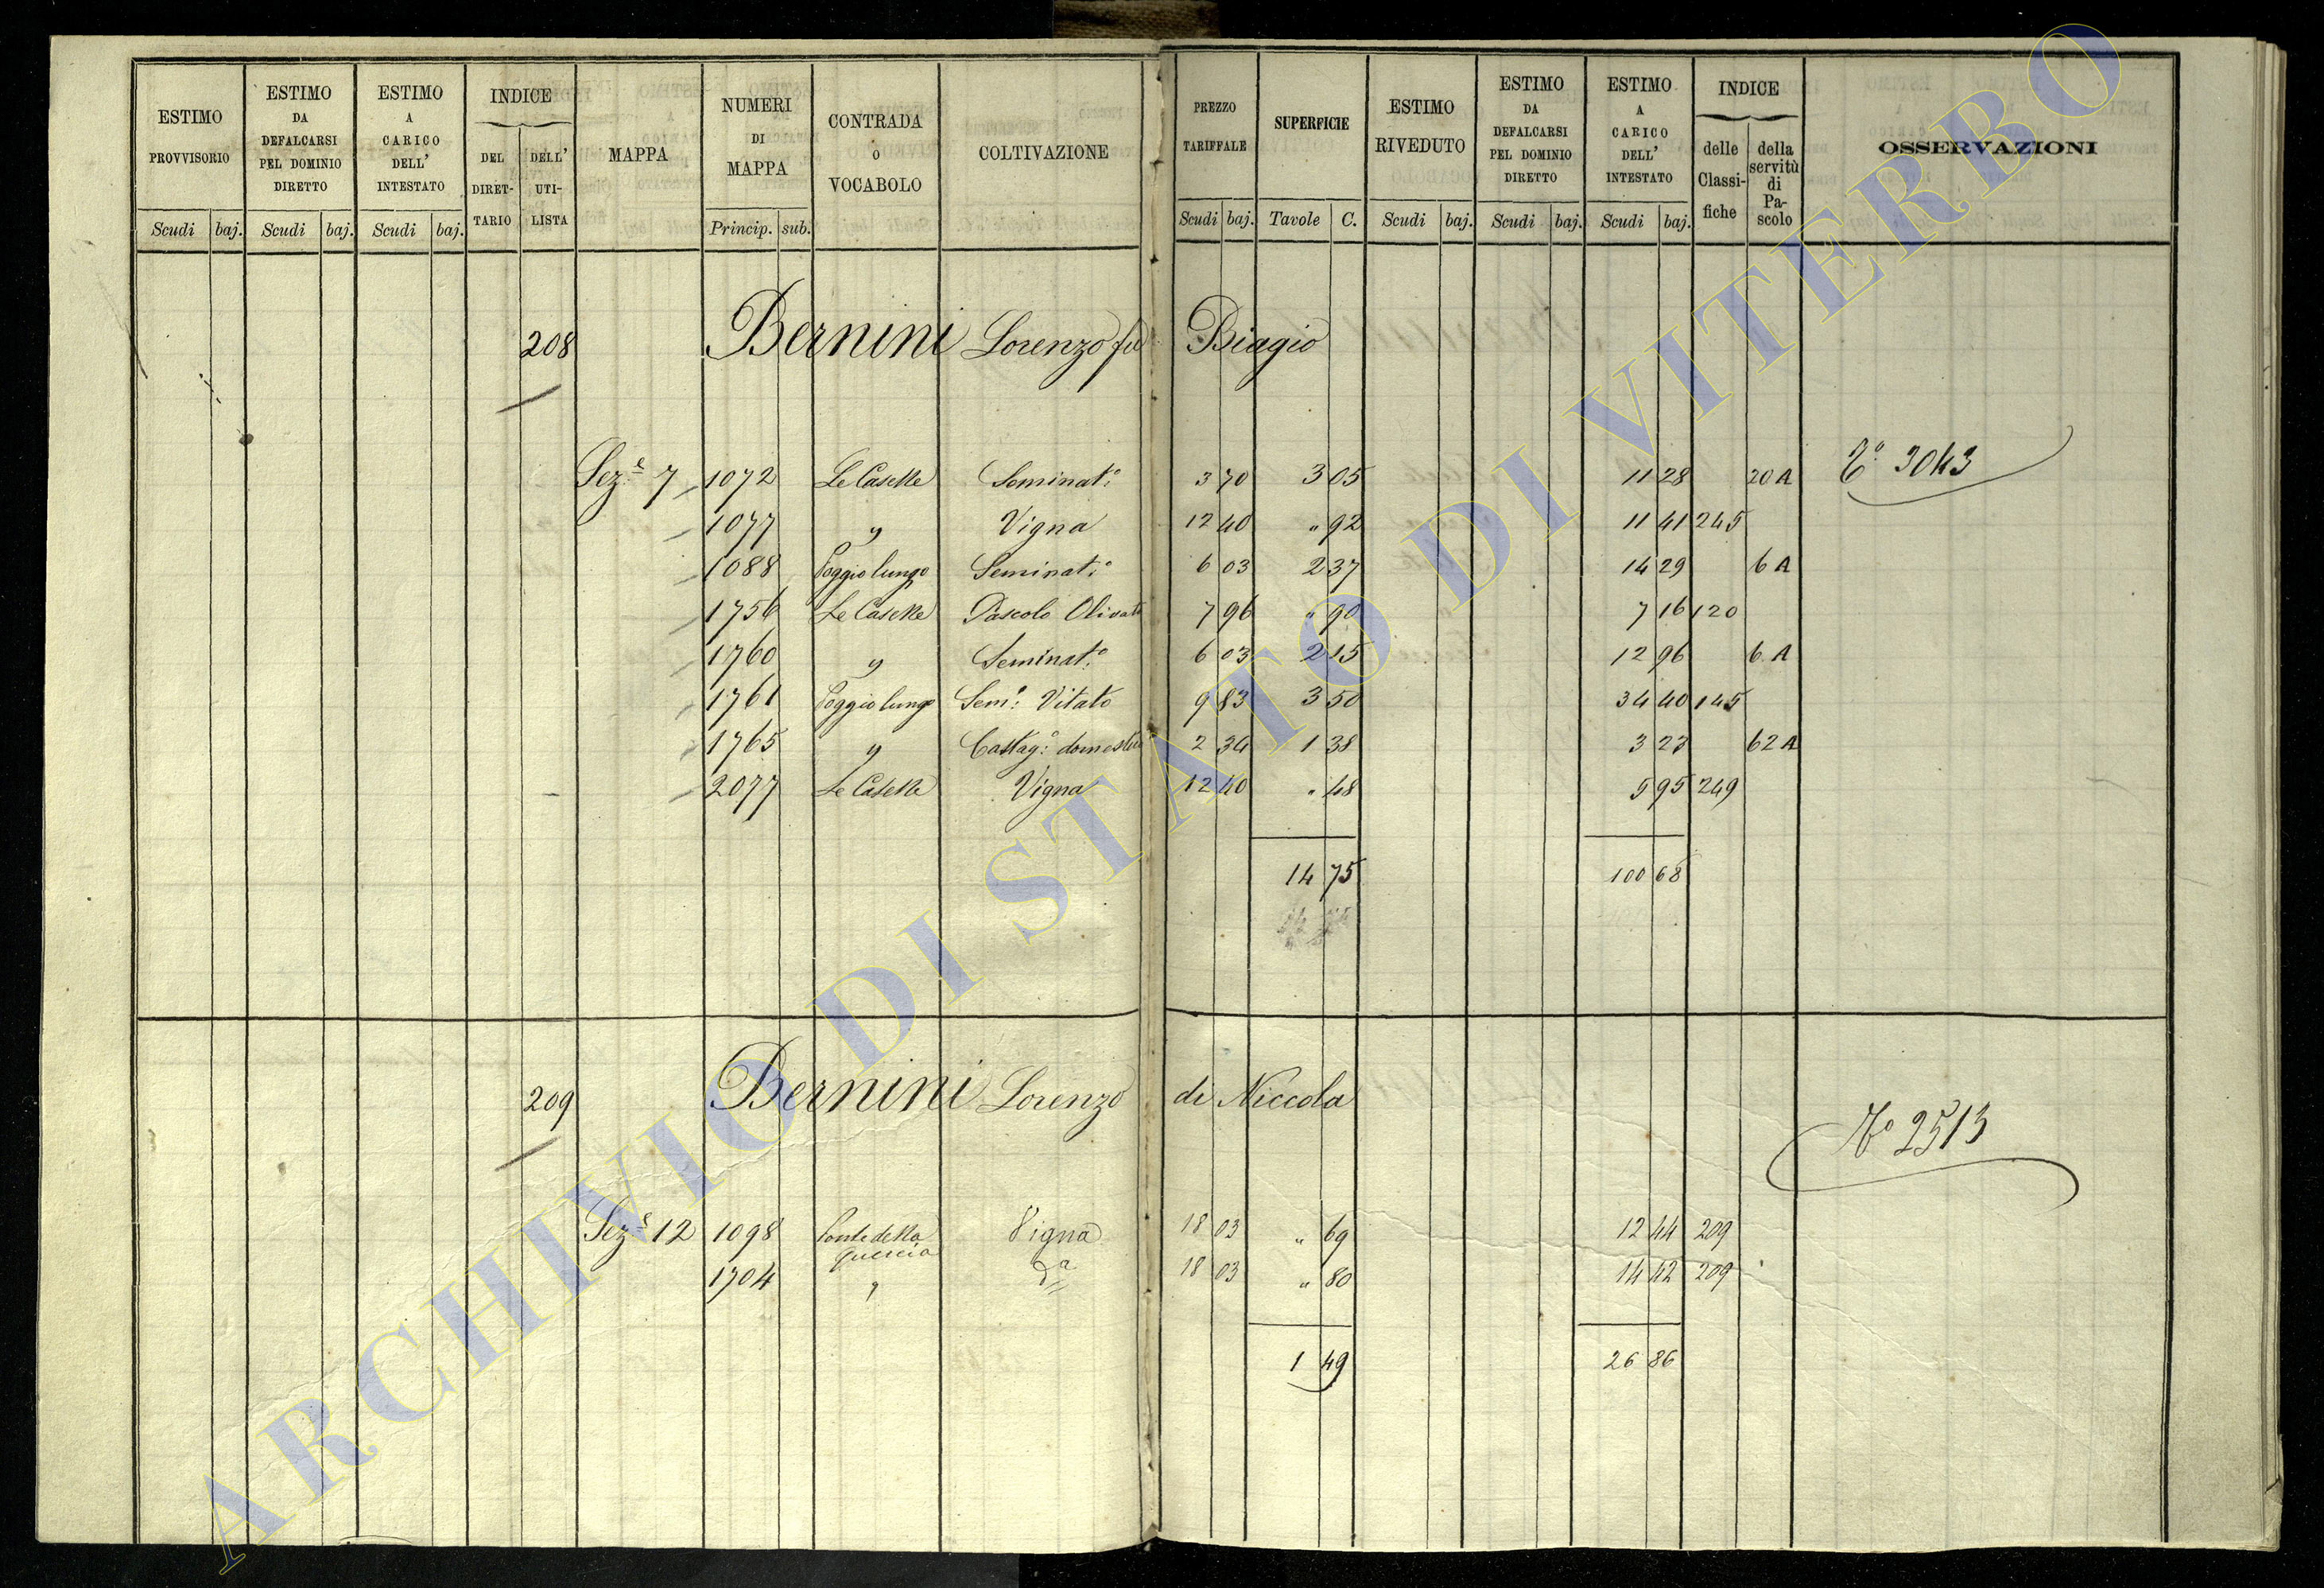 ESTIMO PROVVISORIO
Scudi baj.
ESTIMO DA DEFALCARSI PEL DOMINIO DIRETTO
Scudi baj.
ESTIMO A CARICO DELL' INTESTATO
Scudi baj.
INDICE
DEL DIRET- TARIO
DELL' UTI- LISTA
MAPPA
NUMERI DI MAPPA
Princip. sub.
CONTRADA O VOCABOLO
COLTIVAZIONE
PREZZO TARIFFALE
Scudi baj.
SUPERFICIE
Tavole C.
ESTIMO RIVEDUTO
Scudi baj.
ESTIMO DA DEFALCARSI PEL DOMINIO DIRETTO
Scudi baj.
ESTIMO A CARICO DELL' INTESTATO
Scudi baj.
INDICE
delle Classi- fiche
della servitù di Pa- scolo
OSSERVAZIONI
208 Bernini Lorenzo fu Biagio
Sez.e 7 1072 Le Caselle Seminat.o 3 70 3 05 11 28 20 A No 3043
1077 " Vigna 12 40 " 92 11 41 245
1088 Poggio lungo Seminat.o 6 03 2 37 14 29 6 A
1756 Le Caselle Pascolo Olivato 7 96 " 90 7 16 120
1760 " Seminat.o 6 03 2 15 12 96 6 A
1761 Poggio lungo Sem.o Vitato 9 83 3 50 34 40 145
1765 " Castag.o domestico 2 34 1 38 3 23 62 A
2077 Le Caselle Vigna 12 40 " 48 5 95 249
14 75 100 68
209 Bernini Lorenzo di Niccola
No 2513
Sez.e 12 1098 Ponte della quercia Vigna 18 03 " 69 12 44 209
1704 " Da 18 03 " 80 14 42 209
1 49 26 86
ARCHIVIO DI STATO DI VITERBO